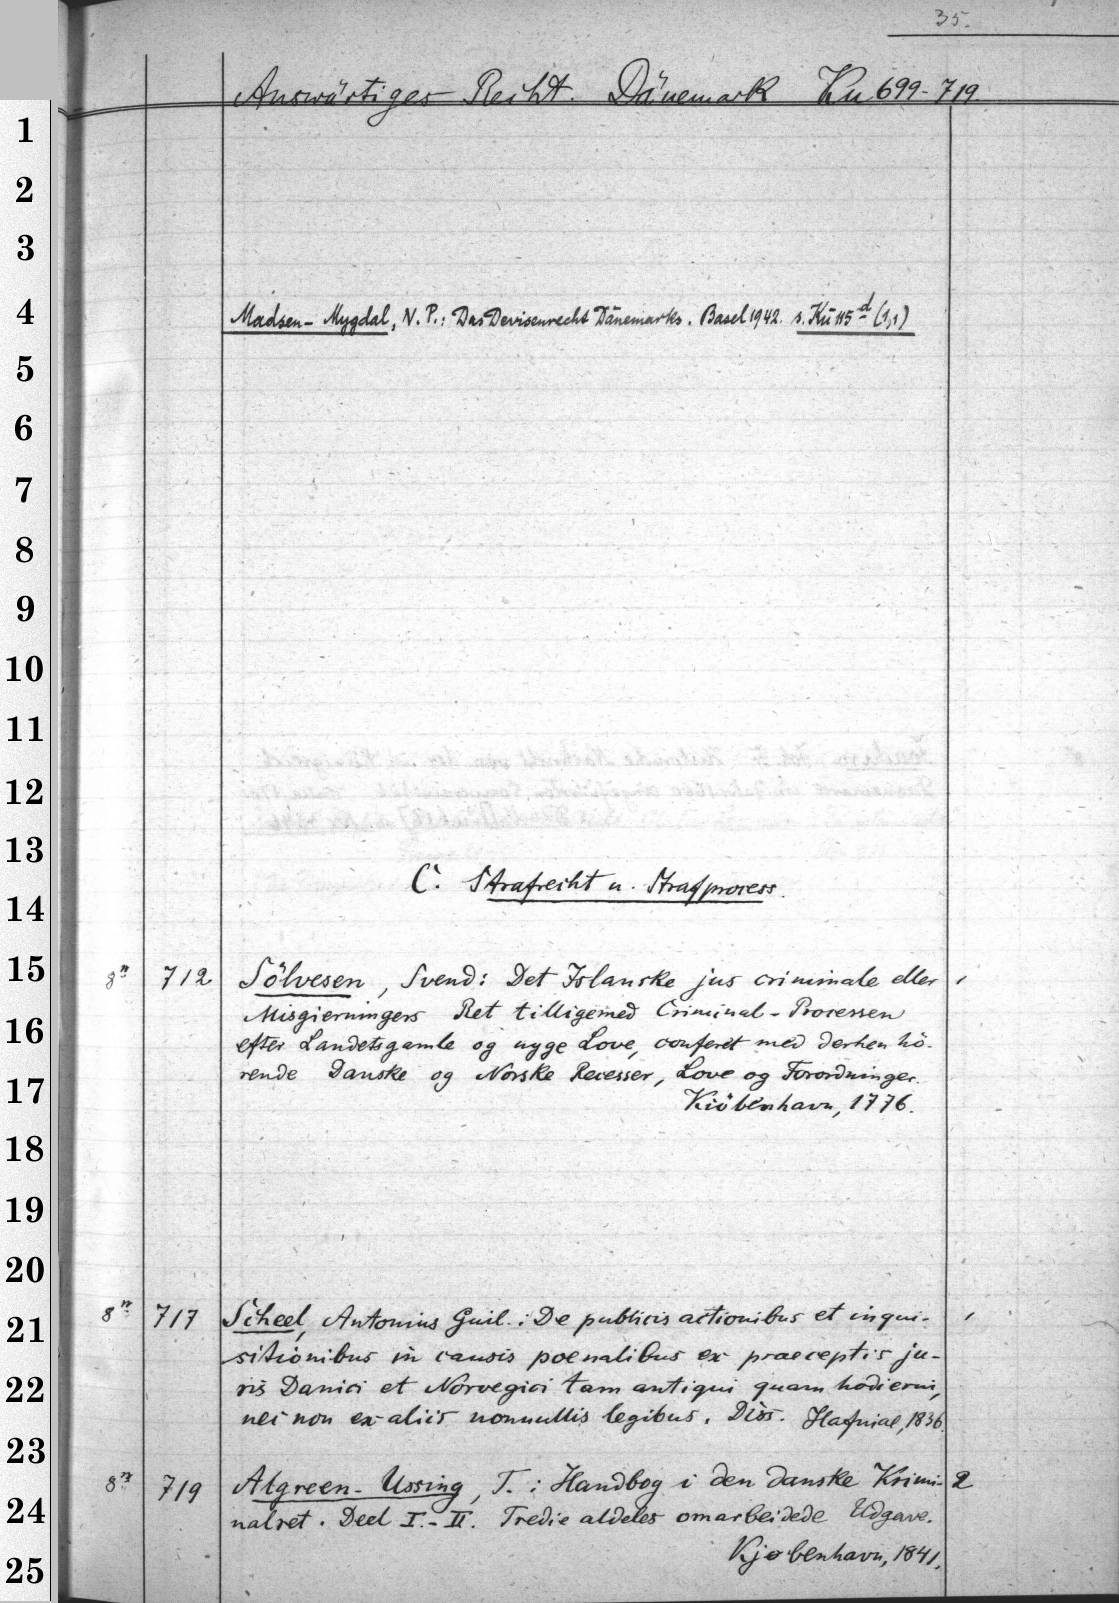 35.
Auswärtiges Recht. Dänemark Ku 699-719.
1
2
3
4
Madsen-Mygdal, N. P.: Das Devisenrecht Dänemarks. Basel 1942. s. Ku 115 d (1,1)
5
6
7
8
9
10
11
12
13
C. Strafrecht u. Strafprocess.
14
15
8º 712 Sölvesen, Svend: Det Islanske jus criminale eller 1
Misgierningers Ret tilligemed Criminal-Processen
16
efter Landets gamle og nyge Love, conferet med derhen hö-
rende Danske og Norske Recesser, Love og Forordninger.
17
Kiöbenhavn, 1776.
18
19
20
8º 717 Scheel, Antonius Guil.: De publicis actionibus et inqui- 1
21
sitionibus in causis poenalibus ex praeceptis ju-
22
ris Danici et Norvegici tam antiqui quam hodierni,
nec non ex aliis nonnullis legibus. Diss. Hafniae, 1836.
23
8º 719 Algreen-Ussing, T.: Handbog i den danske Krimi- 2
24
nalret. Deel I.-II. Tredie aldeles omarbeidede Udgave.
Kjøbenhavn, 1841.
25